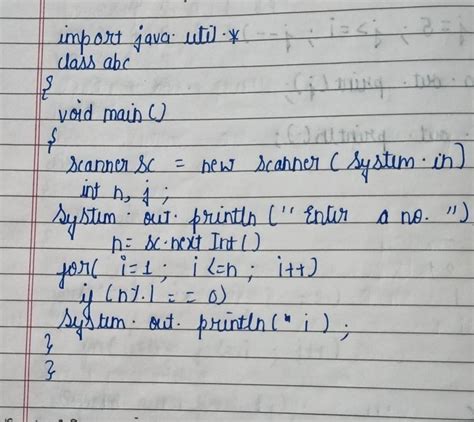 import java. util. *
class abc
{
void main ()
{
Scanner sc = new Scanner ( System. in )
int n, j ;
System. out. println (" Enter a no. ")
n= sc. next Int ()
for( i=1 ; i <=n ; i++)
if (n%1 = = 0)
System. out. println(" i) ;
}
}